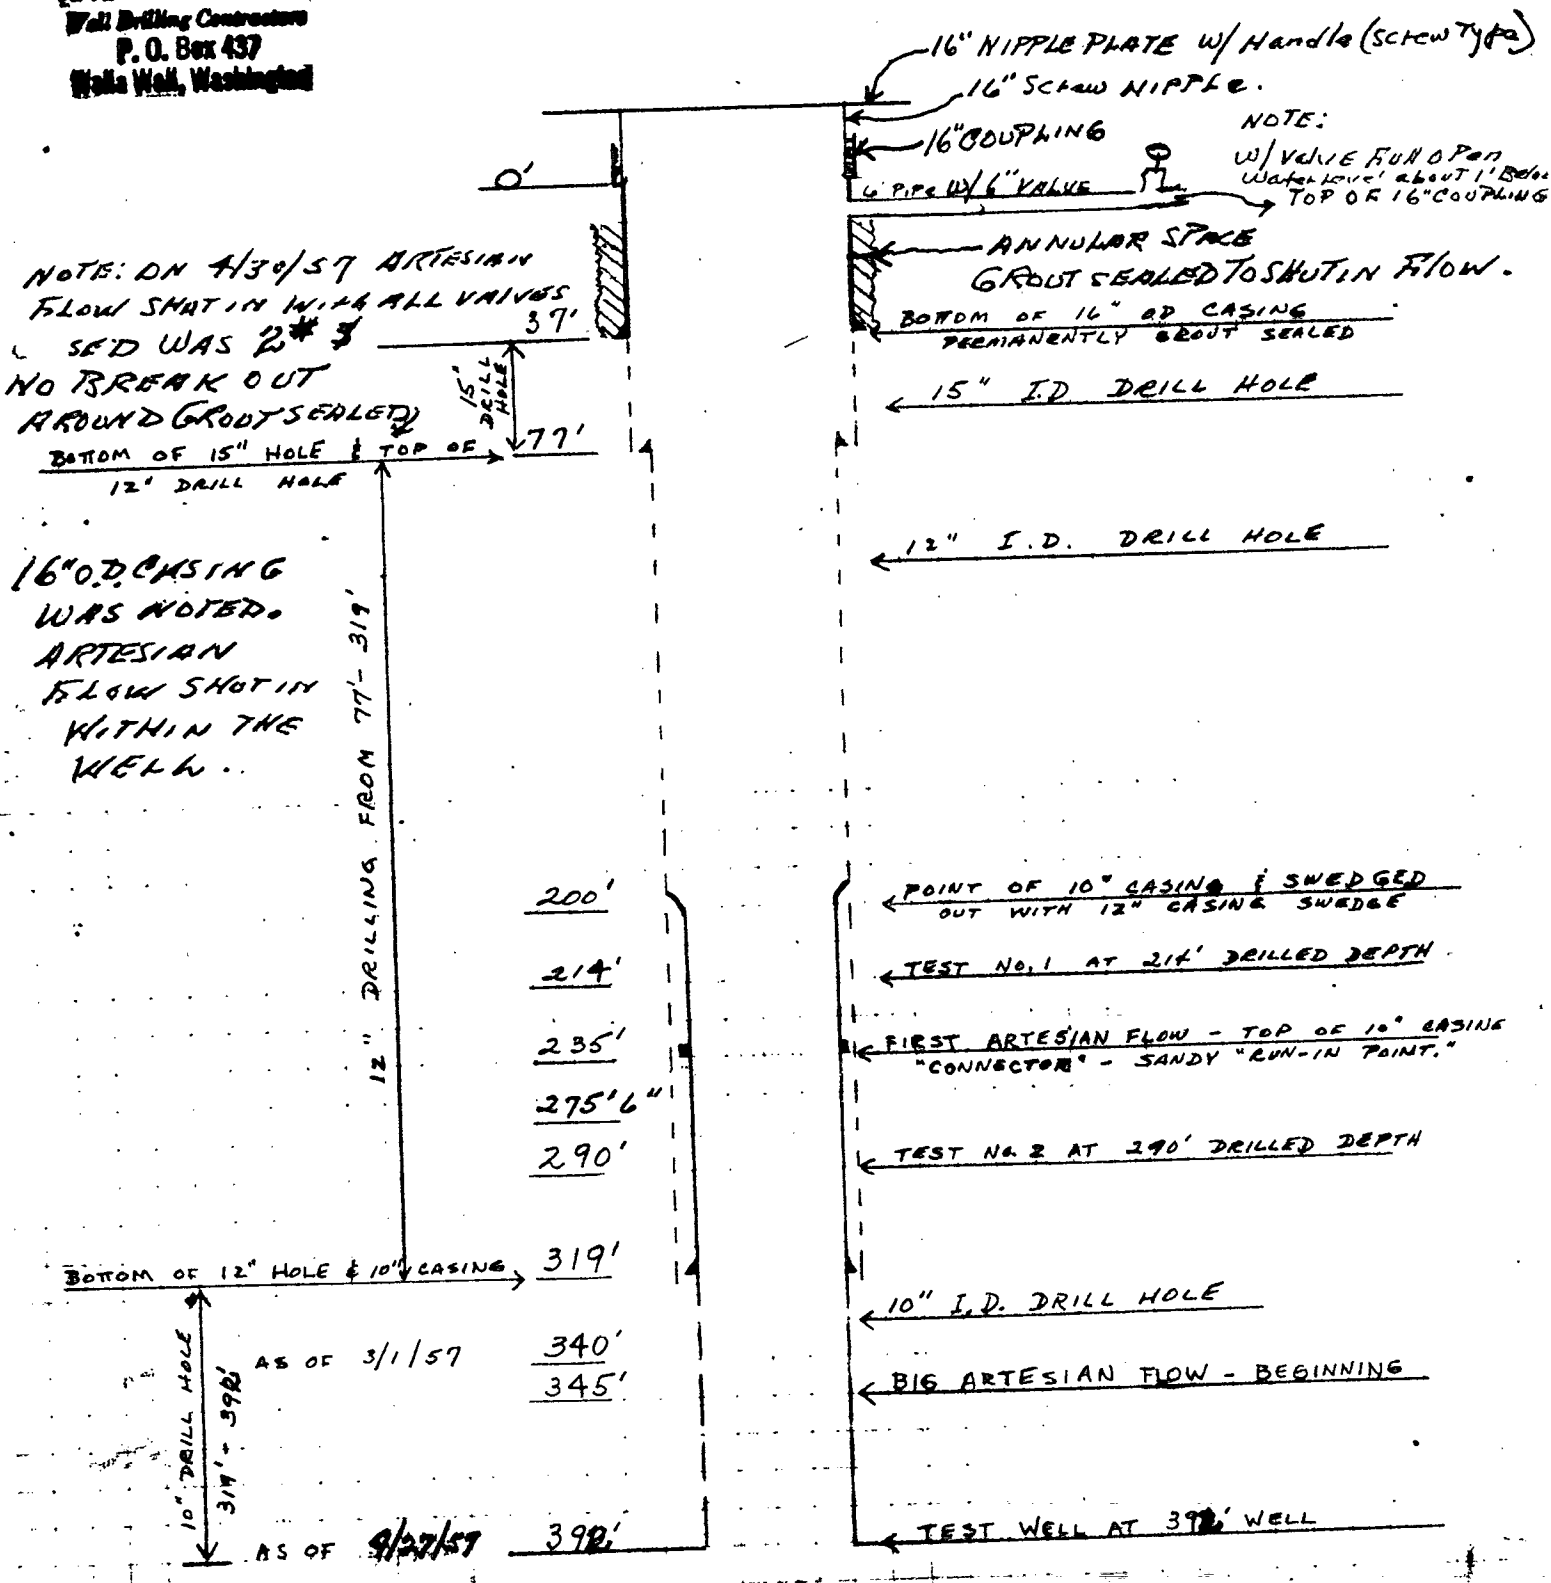 Well Drilling Contractors
P. O. Box 437
Walla Wall, Washington
16" NIPPLE PLATE W/ Handle (Screw Type)
16" Screw NIPPLE.
16" COUPLING
NOTE:
W/ Valve Full Open
Water Level about 1' Below
TOP OF 16" COUPLING
6" PIPE W/ 6" VALVE
0'
ANNULAR SPACE
GROUT SEALED TO SHUT IN FLOW.
NOTE: ON 4/30/57 ARTESIAN
FLOW SHUT IN WITH ALL VALVES
SED WAS 2#
NO BREAK OUT
AROUND GROUT SEALED
37'
BOTTOM OF 16" OD CASING
PERMANENTLY GROUT SEALED
15" DRILL HOLE
15" I.D DRILL HOLE
77'
BOTTOM OF 15" HOLE & TOP OF
12" DRILL HOLE
12" I.D. DRILL HOLE
16" O.D. CASING
WAS NOTED.
ARTESIAN
FLOW SHUT IN
WITHIN THE
WELL..
12" DRILLING FROM 77'- 319'
200'
POINT OF 10" CASING & SWEDGED
OUT WITH 12" CASING SWEDGE
214'
TEST NO. 1 AT 214' DRILLED DEPTH
235'
FIRST ARTESIAN FLOW - TOP OF 10" CASING
"CONNECTOR" - SANDY "RUN-IN POINT."
275'6"
290'
TEST No. 2 AT 290' DRILLED DEPTH
BOTTOM OF 12" HOLE & 10" CASING
319'
10" I.D. DRILL HOLE
10" DRILL HOLE
319' - 392'
AS OF 3/1/57
340'
345'
BIG ARTESIAN FLOW - BEGINNING
AS OF 4/27/57
392'
TEST WELL AT 392' WELL